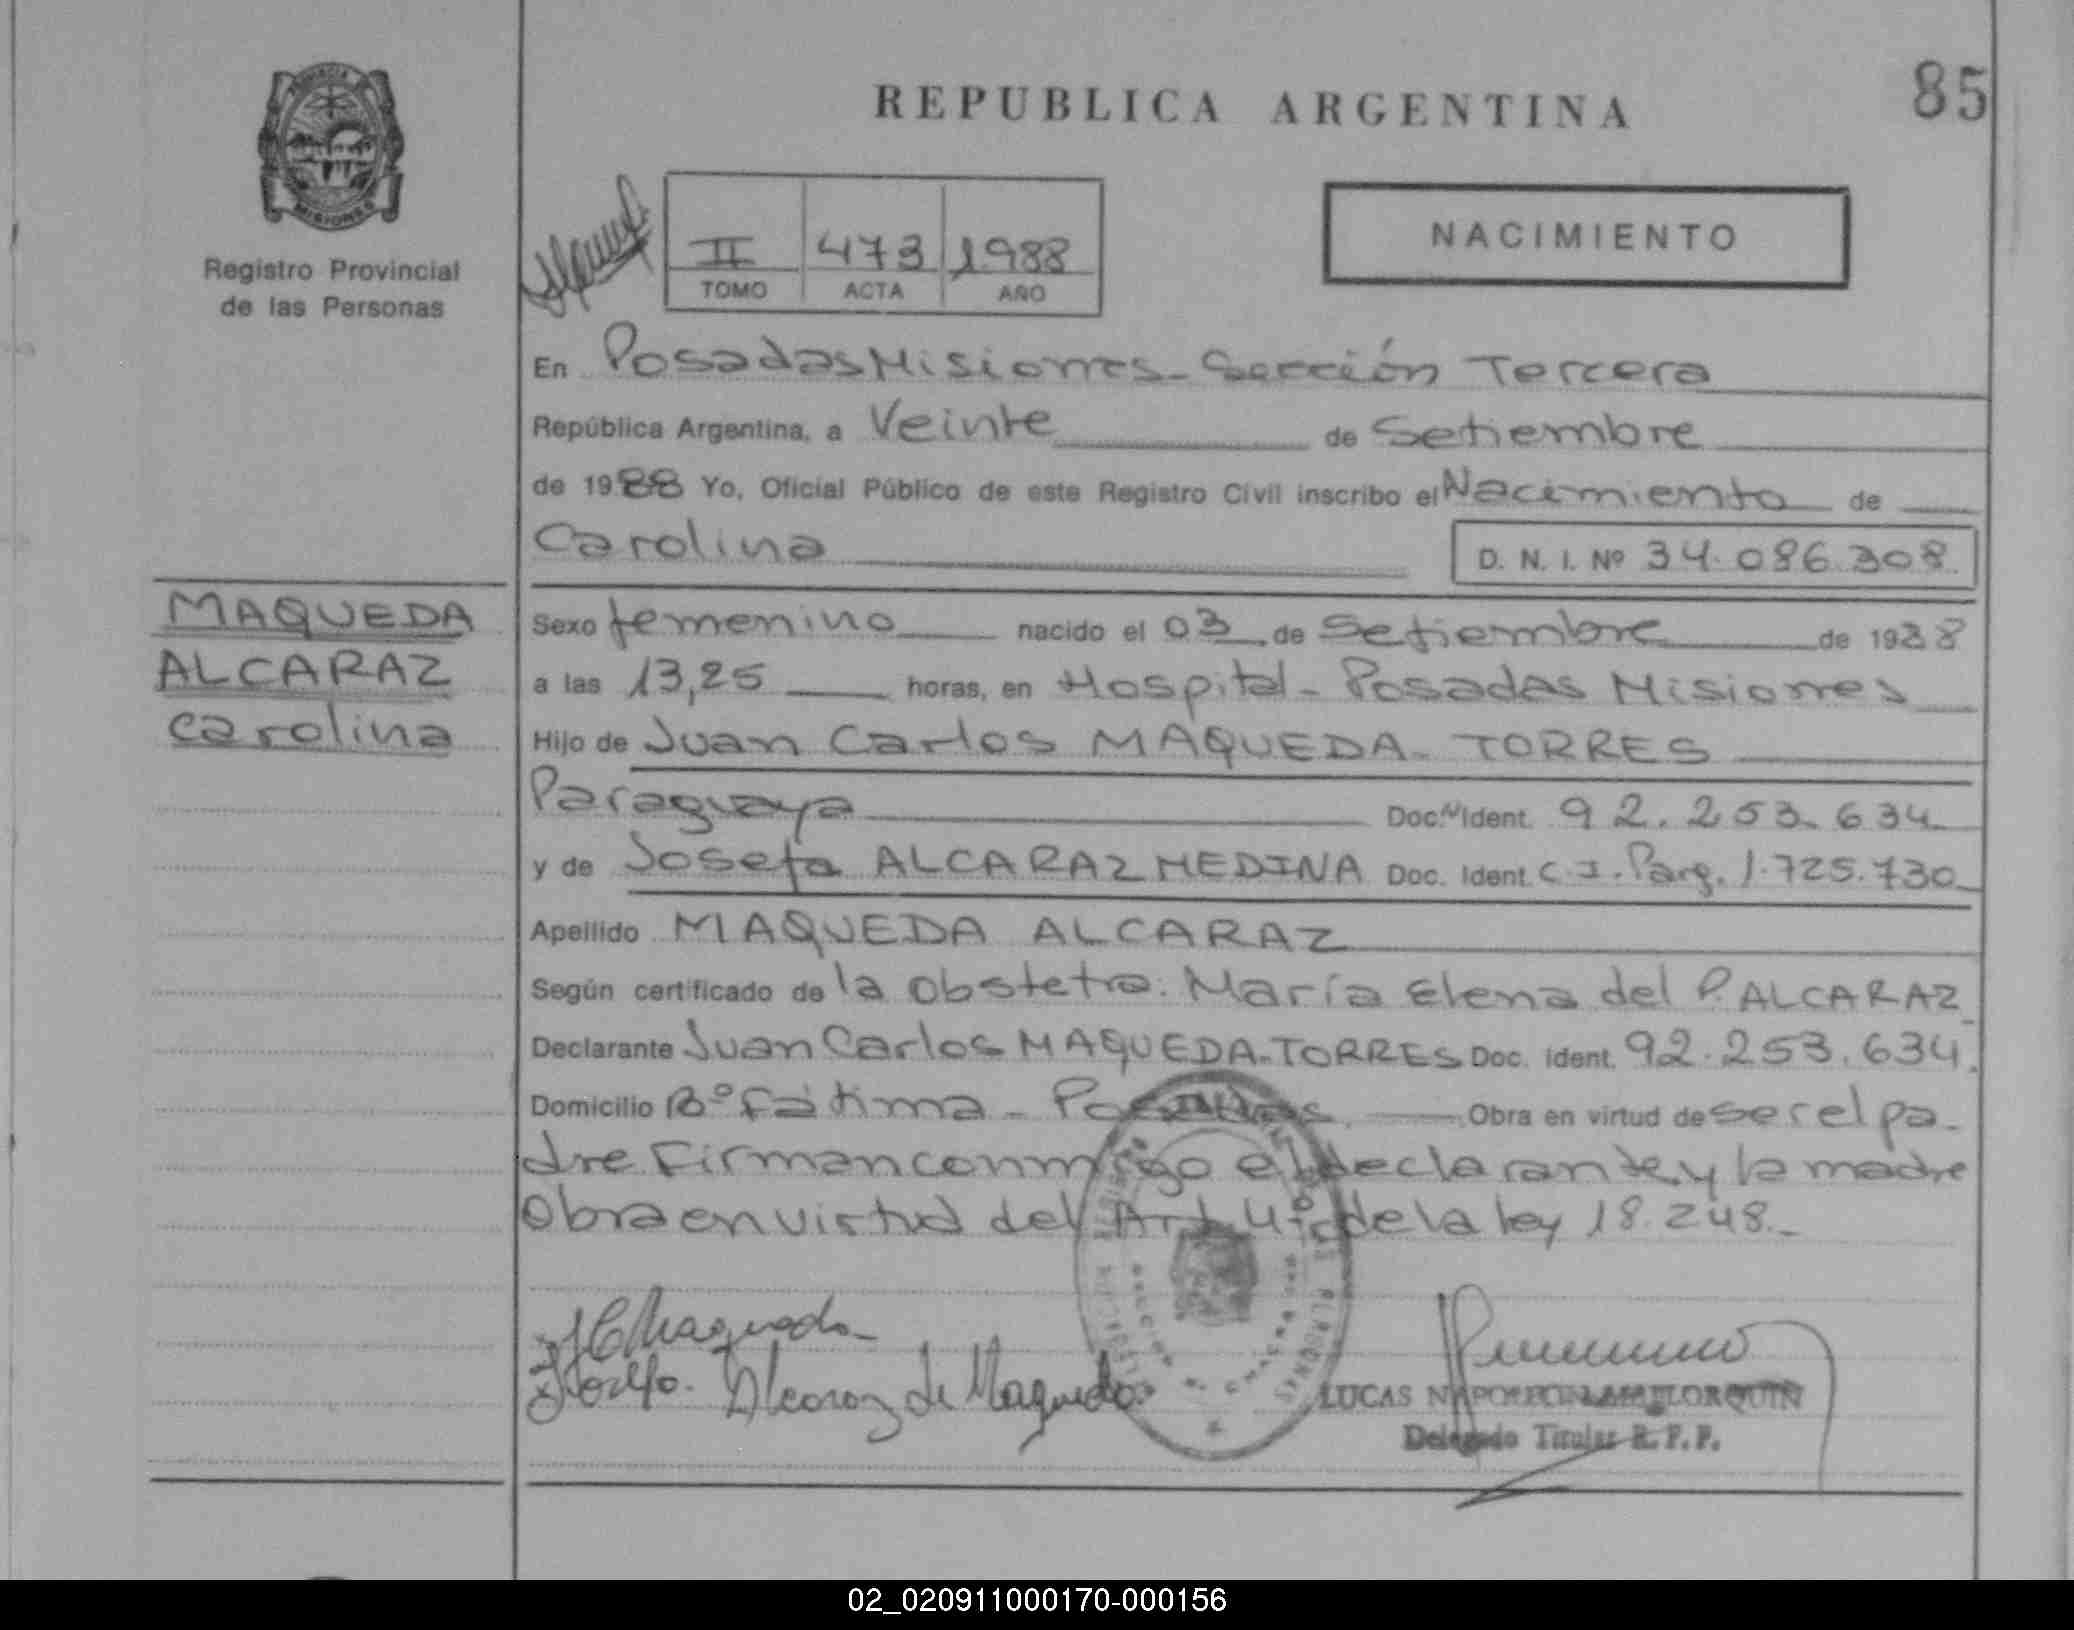 REPUBLICA ARGENTINA
85
PROVINCIA
MISIONES
Registro Provincial
de las Personas
II 473 1988
TOMO ACTA AÑO
NACIMIENTO
En Posadas Misiones - Sección Tercera
República Argentina, a Veinte de Setiembre
de 1988 Yo, Oficial Público de este Registro Civil inscribo el Nacimiento de
Carolina D. N. I. Nº 34.086.308.
MAQUEDA
ALCARAZ
Carolina
Sexo femenino nacido el 03 de Setiembre de 1988
a las 13,25 horas, en Hospital - Posadas Misiones
Hijo de Juan Carlos MAQUEDA - TORRES
Paraguaya Doc. Ident. 92.253.634
y de Josefa ALCARAZ MEDINA Doc. Ident. C.I. Parg. 1.725.730
Apellido MAQUEDA ALCARAZ
Según certificado de la obstetra: María Elena del P. ALCARAZ
Declarante Juan Carlos MAQUEDA - TORRES Doc. Ident. 92.253.634.
Domicilio Bº Fátima - Posadas. Obra en virtud de ser el pa-
dre Firman conmigo el declarante y la madre
Obra en virtud del Art. 4º de la ley 18.248.-
JCMaqueda
Alcaraz de Maqueda
LUCAS NAPOLEON MALLORQUIN
Delegado Titular R.P.P.
02_020911000170-000156